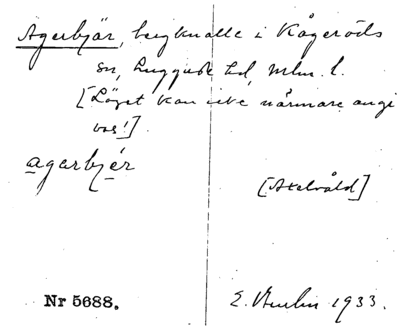 Agerbjär, bergknalle i Kågeröds
sn, Luggude hd, Mlm. l.
[Läget kan icke närmare angi
vas!]
agarbjér
[Axelvåld]
Nr 5688.
E. 1933.